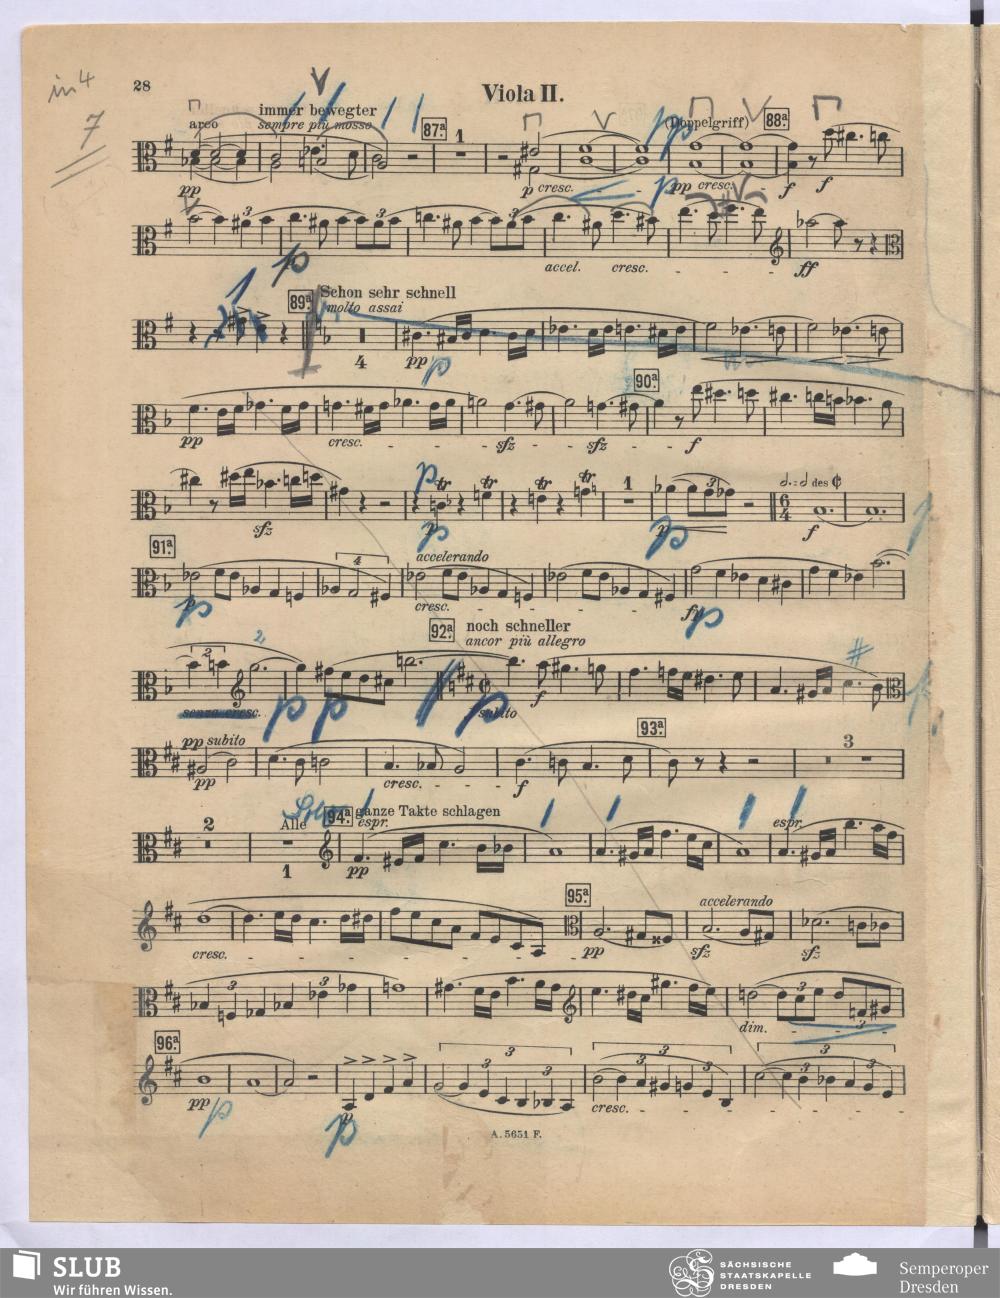 in 4
7
28
Viola II.
immer bewegter
arco
sempre più mosso
87ª
1
(Doppelgriff)
88ª
pp
p cresc.
p
pp
pp cresc.
f
f
3
3
3
p
accel. cresc.
ff
1
89ª
Schon sehr schnell
molto assai
4
pp
p
90ª
pp
cresc.
sfz
sfz
f
sfz
p
tr
tr
tr
tr
p
1
3
p
6
4
des
f
91ª
4
accelerando
p
cresc.
p
92ª
noch schneller
ancor più allegro
2
2
senza cresc.
p p
p
subito
f
pp subito
pp
cresc.
f
93ª
3
2
Alle
1
94ª
ganze Takte schlagen
espr.
pp
espr.
cresc.
95ª
pp
accelerando
sfz
sfz
3
3
dim.
3
3
96ª
pp
p
p
p
3
3
3
3
cresc.
3
3
3
3
A. 5651 F.
SLUB
Wir führen Wissen.
SÄCHSISCHE
STAATSKAPELLE
DRESDEN
Semperoper
Dresden